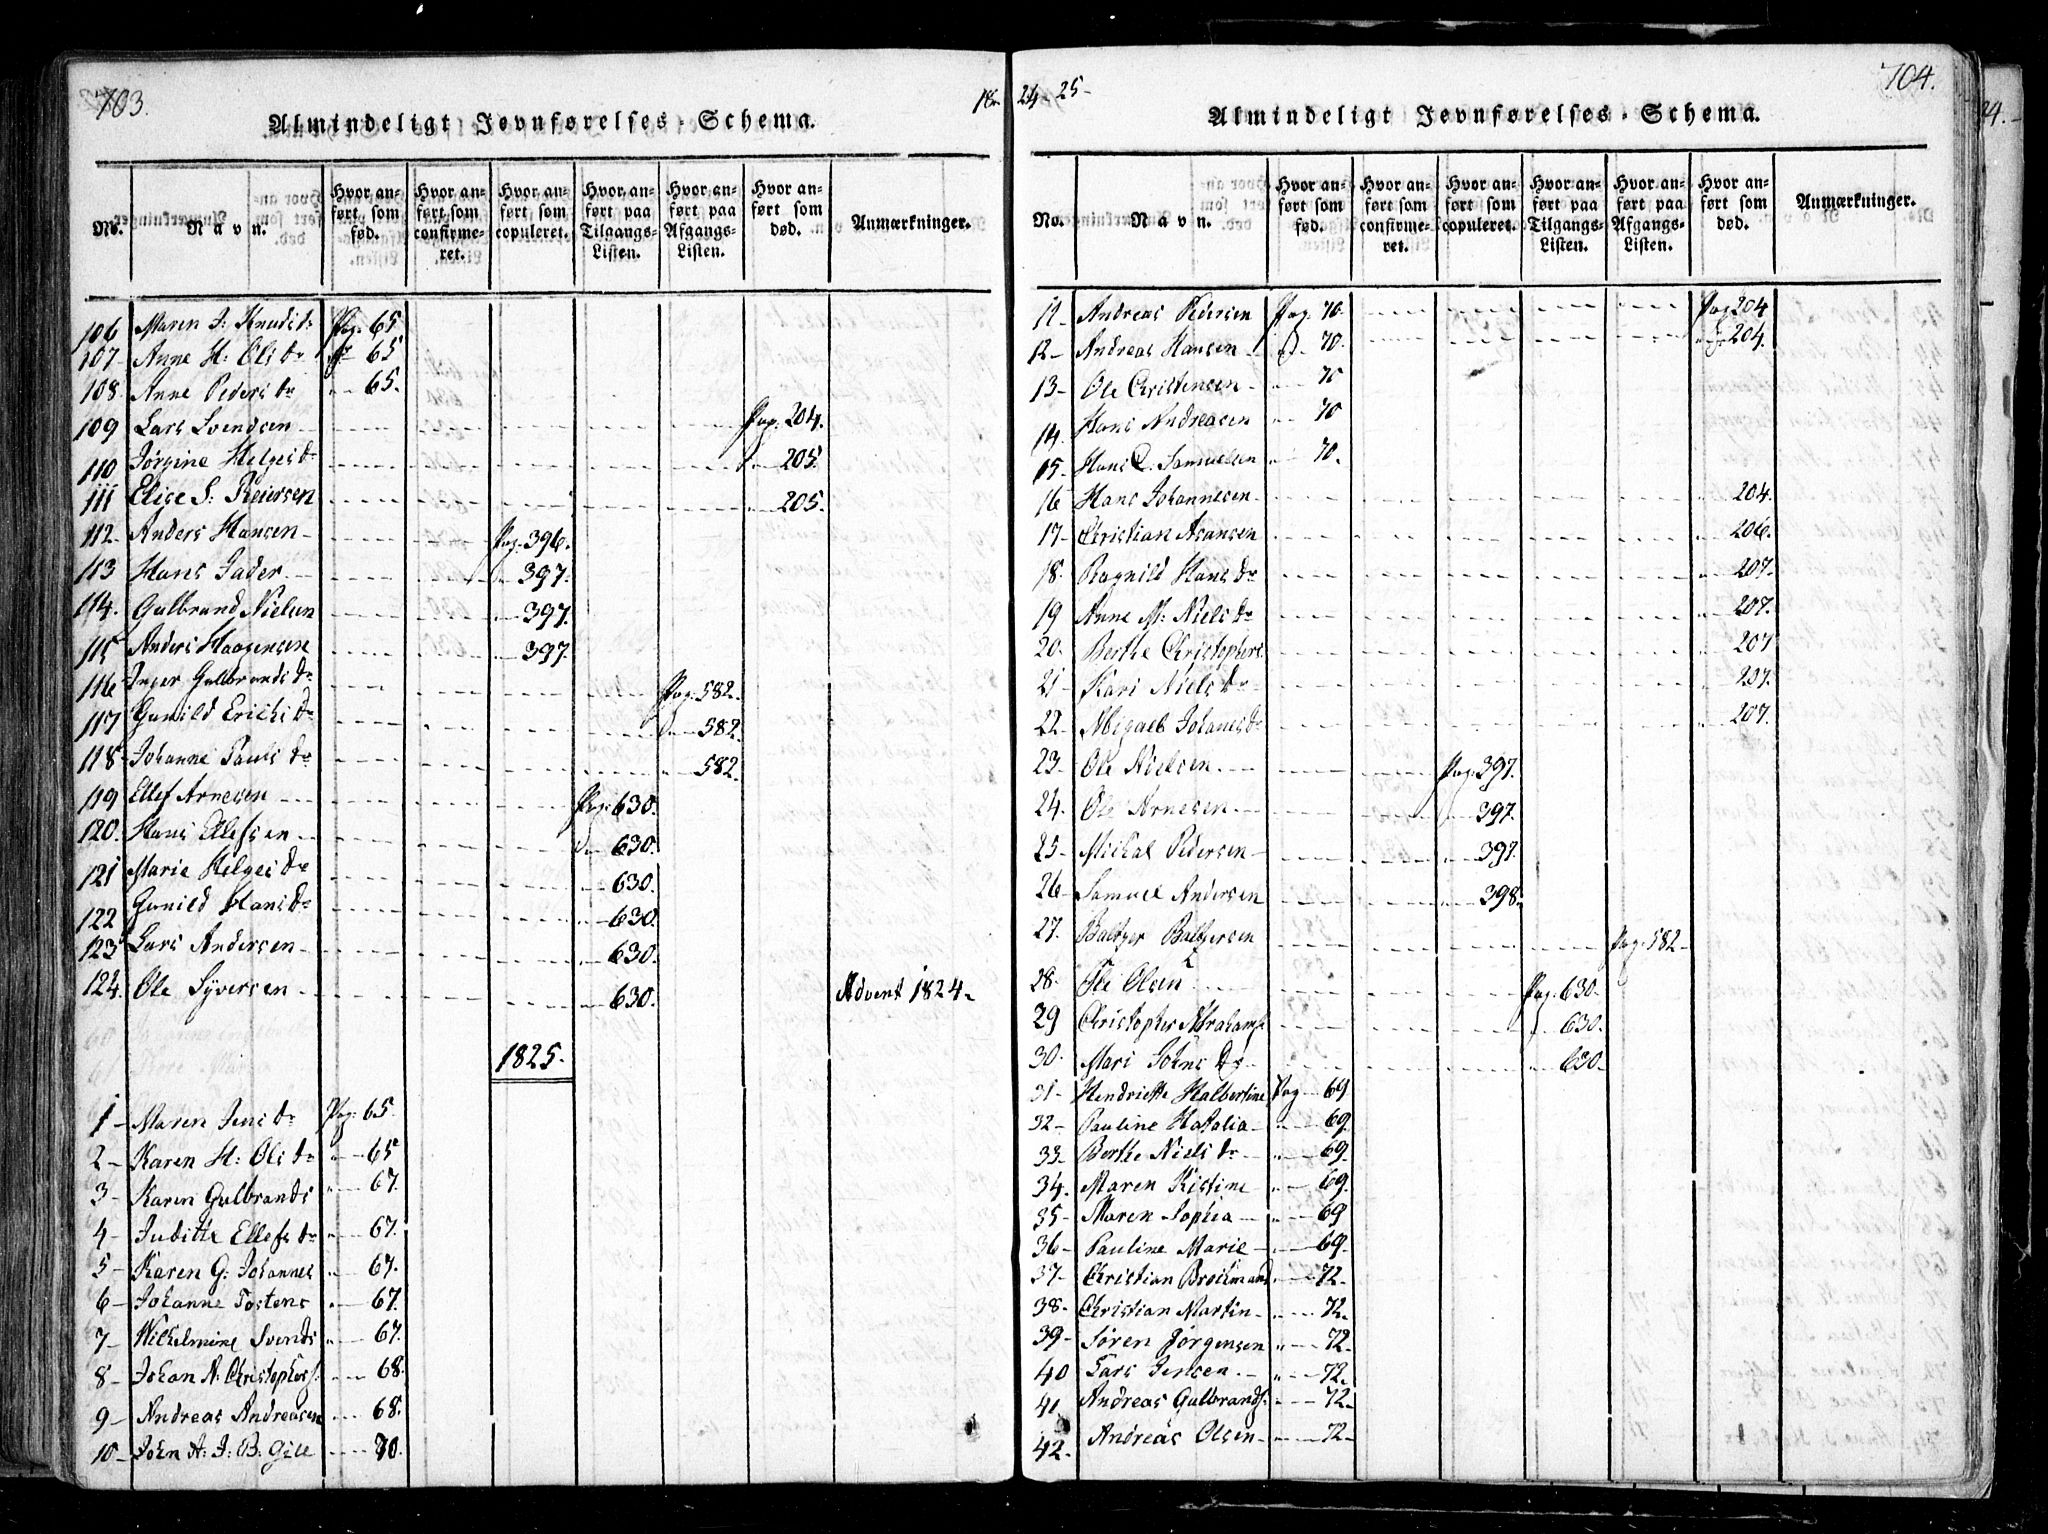 703.
18
Almindeligt Jevnførelses-Schema.
No.
Navn.
Hvor anført som fød.
Hvor anført som confirmeret.
Hvor anført som copuleret.
Hvor anført paa Tilgangs-Listen.
Hvor anført paa Afgangs-Listen.
Hvor anført som død.
Anmærkninger.
106 Maren J: Knuds dr Pag: 65
107- Anne H: Ols dr 65
108. Anne Peders dr 65.
109 Lars Svendsen Pag. 204.
110 Jørgine Helges dr 205.
111 Elise S: Reiersen 205.
112- Anders Hansen Pag. 396.
113 Hans Gader 397.
114. Gulbrand Nielsen 397.
115 Anders Haagensen 397.
116 Inger Gulbrands dr Pag. 582.
117 Gunild Erichs dr 582.
118 Johanne Pauls dr 582.
119 Ellef Arnesen Pag: 630.
120. Hans Ellefsen 630.
121 Marie Helges dr 630.
122 Gunild Hans dr 630.
123 Lars Andersen 630.
124. Ole Syversen 630. Advent 1824.
1825.
1- Maren Jens dr Pag: 65.
2- Karen H: Ols dr 65
3- Karen Gulbrands 67.
4- Juditte Ellefs dr 67.
5- Karen G: Johannes 67.
6- Johanne Tostens 67.
7- Wilhelmine Svends 67.
8- Johan N: Christophers: 68.
9- Andreas Andreasen 68.
10- John A: J: B: Gill 70.
24-25-
704.
Almindeligt Jevnførelses-Schema.
No.
Navn.
Hvor anført som fød.
Hvor anført som confirmeret.
Hvor anført som copuleret.
Hvor anført paa Tilgangs-Listen.
Hvor anført paa Afgangs-Listen.
Hvor anført som død.
Anmærkninger.
11- Andreas Pedersen Pag. 70. Pag 204
12- Andreas Hansen 70. 204.
13- Ole Christensen 70
14. Hans Andreasen 70
15. Hans C: Samuelsen 70.
16 Hans Johannesen 204.
17- Christian Asansen 206.
18. Ragnild Hans dr 207.
19 Anne M: Niels dr 207.
20. Berthe Christophers: 207
21- Kari Niels dr 207.
22- Abigael Johanes dr 207.
23. Ole Nielsen Pag: 397.
24. Ole Arnesen 397.
25- Michal Pedersen 397.
26- Samuel Andersen 398.
27. Baltzer Baltzersen Pag. 582-
28. Ole Olsen Pag. 630.
29 Christopher Abrahams: 630.
30. Mari Johns dr 630.
31- Hendriette Halbertine Pag 69
32- Pauline Natalia 69.
33- Berthe Niels dr 69.
34. Maren Kistine 69.
35- Maren Sophia 69
36- Pauline Marie 69.
37- Christian Brochmand 72.
38- Christian Martin 72.
39- Søren Jørgensen 72-
40 Lars Jensen 72.
41. Andreas Gulbrands: 72-
42- Andreas Olsen 72-